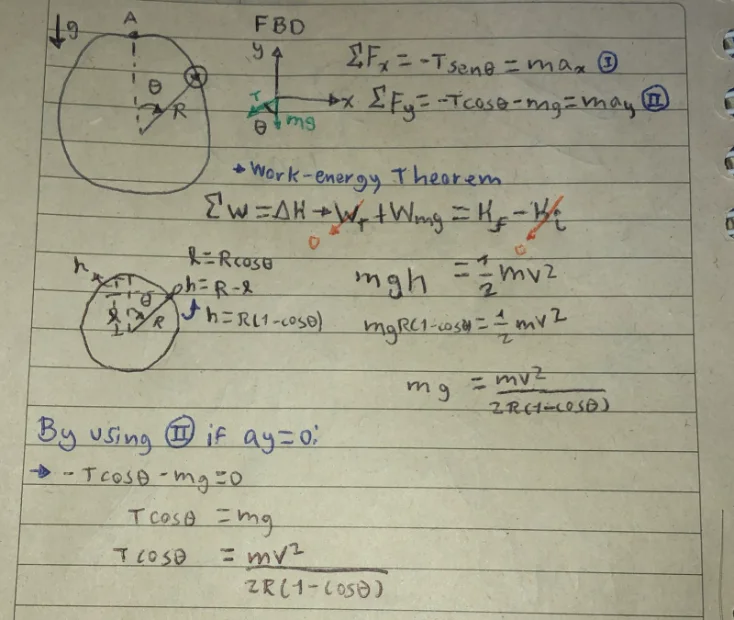 g
A
FBD
y
ΣFx = -Tsenθ = max Ⓘ
θ
R
T
x
ΣFy = -Tcosθ - mg = may Ⓘ Ⓘ
θ
mg
→ Work-energy Theorem
ΣW = ΔK → W_T + Wmg = Kf - Ki
0
0
h
l = Rcosθ
h = R - l
h = R(1-cosθ)
l
θ
R
mgh = 1/2 mv²
mgR(1-cosθ) = 1/2 mv²
mg = mv² / 2R(1-cosθ)
By using Ⓘ Ⓘ if ay=0:
→ -Tcosθ - mg = 0
Tcosθ = mg
Tcosθ = mv² / 2R(1-cosθ)